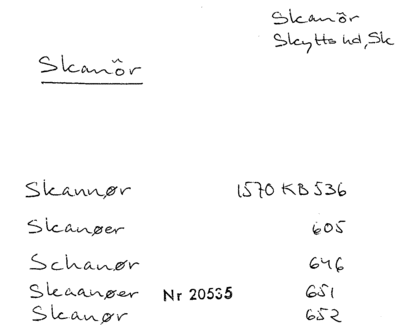 Skanör
Skytts hd, Sk
Skanör
Skannør 1570 KB 536
Skanøer 605
Schanør 646
Skaanøer Nr 20535 651
Skanør 652